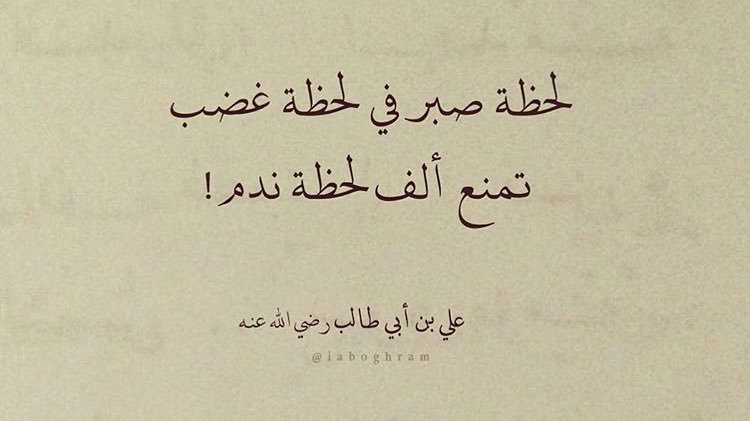 لحظة صبر في لحظة غضب
تمنع ألف لحظة ندم !
علي بن أبي طالب رضي الله عنه
@iaboghram